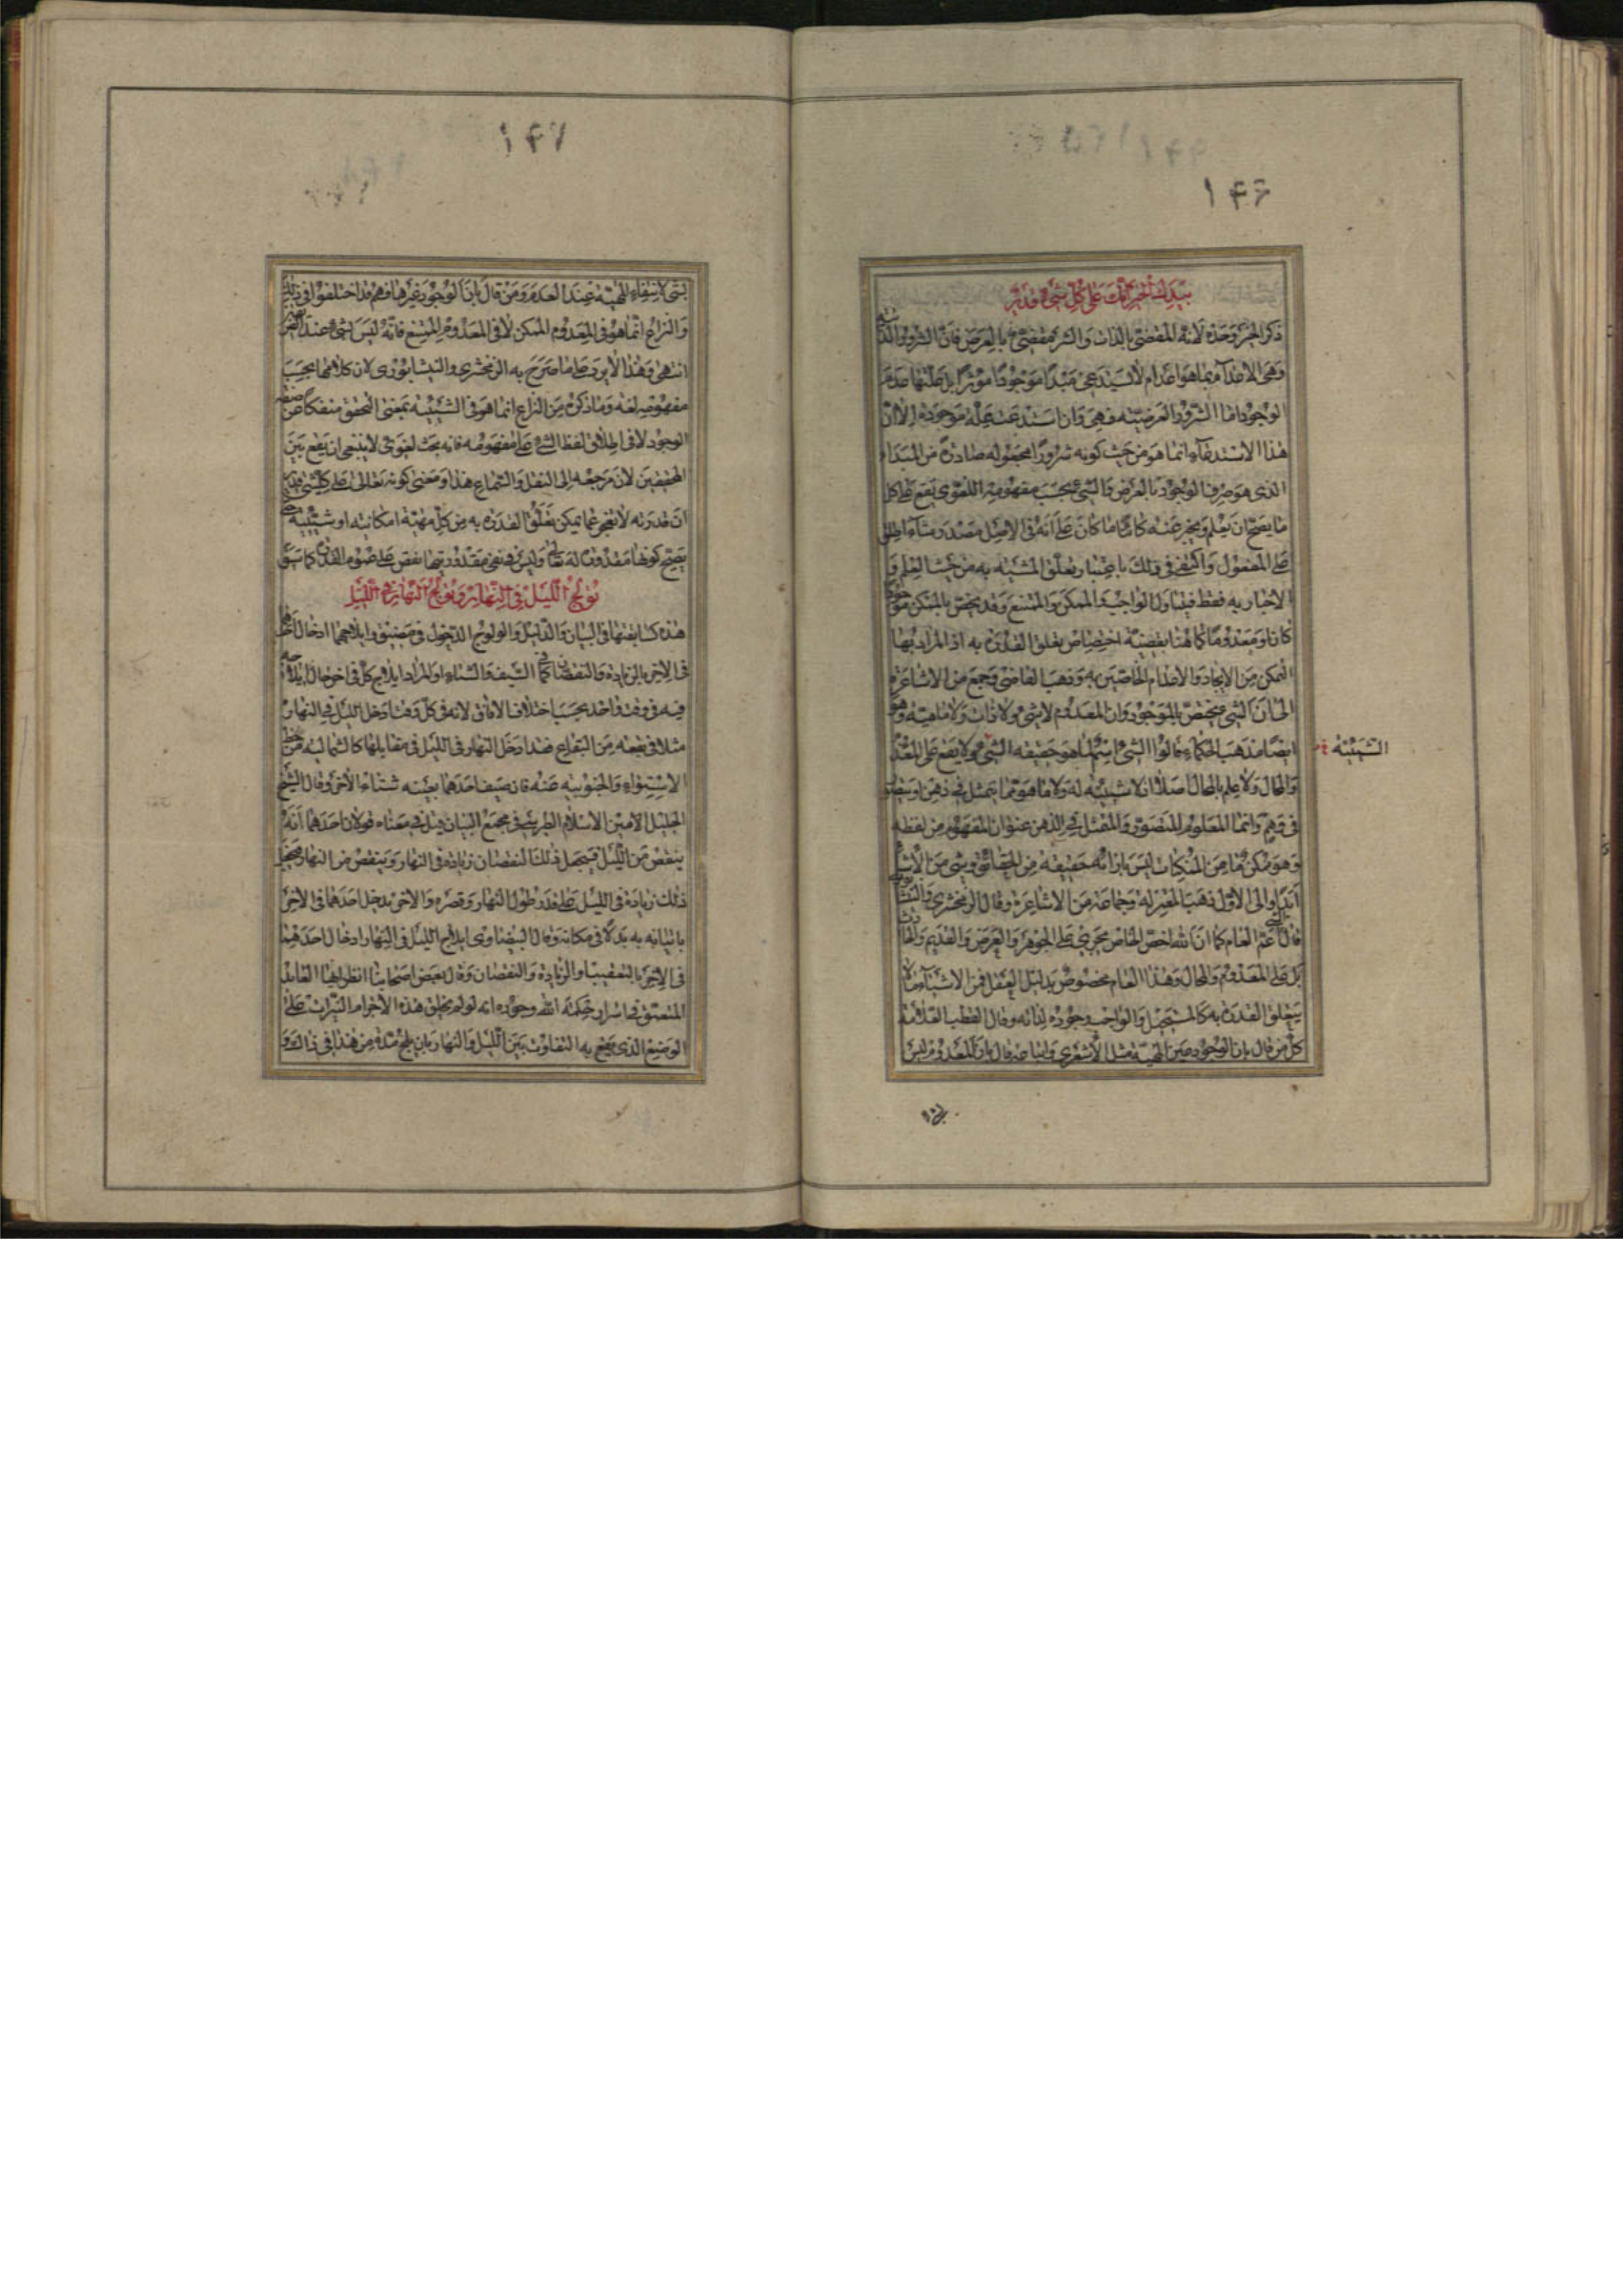 ١٤٦
بيدك الخير انك على كل شيء قدير
ذكر الخير وحده لانه المقضي بالذات والشر مقضي بالعرض فان الشرور
وهي الاعدام بما هو اعدام لا يستدعي مبدأ موجودا مؤثرا بل علتها عدم
الوجود اما الشرور العرضية فهي وان استدعت علة موجودة الا ان
هذا الاستدعاء انما هو من حيث كونه شرورا مجعوله صادرة من المبداء
الذي هو صرف الوجود بالعرض والشيء بحسب مفهومه اللغوي يقع على كل
ما يصح ان يعلم ويخبر عنه كائنا ما كان على انه في الاصل مصدر شاء اطلق
على المفعول واكتفى في ذلك باعتبار تعلق المشية به من حيث العلم و
الاخبار به فقط فيتناول الواجب والممكن والممتنع وقد يخص بالممكن موجودا
كان او معدوما كما هنا بقضية اختصاص تعلق القدرة به اذ المراد بها
التمكن من الايجاد والاعدام الخاصين به وذهب القاضي وجمع من الاشاعرة
الى ان الشيء مختص بالموجود وان المعدوم لا شيء ولا ذات ولا ماهية وهو
ايضا مذهب الحكماء قالوا الشيء اسم لما هو حقيقه الشيء ولا يقع على المعدوم
والمحال ولا علم بالمحال اصلا اذ لا شيئية له ولا هو مما يتمثل في ذهن او يتصور
في وهم وانما المعلوم المتصور والمتمثل في الذهن عنوان المفهوم من لفظه
وهو ممكن ما من الممكنات ليس بازائه حقيقة من الحقائق وشيء من الاشياء
ابدا والى الاول ذهب المعتزلة وجماعة من الاشاعرة وقال الزمخشري والنيشابوري
قال الشيء اعم العام كما ان الله اخص الخاص يجري على الجوهر والعرض والقديم والحادث
بل على المعدوم والمحال وهذا العام مخصوص بدليل العقل فمن الاشياء ما لا
يتعلق القدرة به كالمستحيل والواجب وجوده لذاته وقال القطب العلامة
كل من قال بان الوجود عين المهية مثل الاشعري واتباعه قال بان المعدوم ليس
الشيئية
١٤٧
بشيء لانتفاء المهية عند العدم ومن قال بان الوجود غيرها فهم قد اختلفوا في ذلك
والنزاع انما هو في المعدوم الممكن لا في المعدوم الممتنع فانه ليس بشيء عند
انتهى وهذا لا يرد على ما صرح به الزمخشري والنيشابوري لان كلامهما بحسب
مفهومه لغة وما ذكره من النزاع انما هو في الشيئية بمعنى التحقق منفكا عن صفة
الوجود لا في اطلاق لفظ الشيء على مفهومه فانه بحث لغوي لا ينبغي ان يقع بين
المحققين لان مرجعه الى النقل والسماع هذا ومعنى كونه تعالى على كل شيء قدير
ان قدرته لا تعجز عما يمكن تعلق القدرة به من كل مهية امكانية او شيئية
يصح كونها مقدورة له تعالى وليس في نفي مقدوريتها نقص على عموم القدرة كما سبق
تولج الليل في النهار وتولج النهار في الليل
هذه كسابقتها في البيان والدليل والولوج الدخول في مضيق وايلاجهما ادخال احدهما
في الاخر بالزيادة والنقصان كما في الصيف والشتاء او المراد ايلاج كل في اخر حال ايلاجه
فيه في وقت واحد بحسب اختلاف الافاق لانه في كل وقت ادخل الليل في النهار
مثلا في بقعة من البقاع فقد ادخل النهار في الليل في مقابلها كالشمالية من خط
الاستواء والجنوبية عنه فان صيف احدهما بعينه شتاء الاخر وقال الشيخ
الجليل الامين الاسلام الطبرسي في مجمع البيان قيل في معناه قولان احدهما انه
ينقص من الليل فيجعل ذلك النقصان زيادة في النهار وينقص من النهار فيجعل
ذلك زيادة في الليل على قدر طول النهار وقصره والاخر يدخل احدهما في الاخر
باتيانه به بدلا في مكانه وقال البيضاوي ايلاج الليل في النهار ادخال احدهما
في الاخر بالتعقيب او الزيادة والنقصان وقال بعض اصحابنا انظر ايها العاقل
المتعمق في اسرار حكمة الله وجوده انه لو لم يخلق هذه الاجرام النيرات على
الوضع الذي يقع به التفاوت بين الليل والنهار بان يلج مدة من هذا في ذاك و